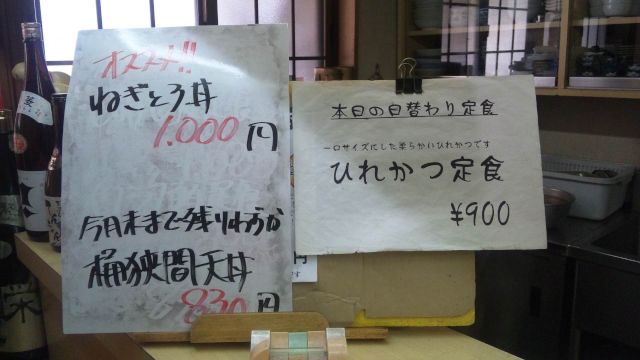 オススメ!!
ねぎとろ丼
1.000円
今月末まで残りわずか
桶狭間天丼
830円
本日の日替わり定食
一口サイズにした柔らかいひれかつです
ひれかつ定食
¥900